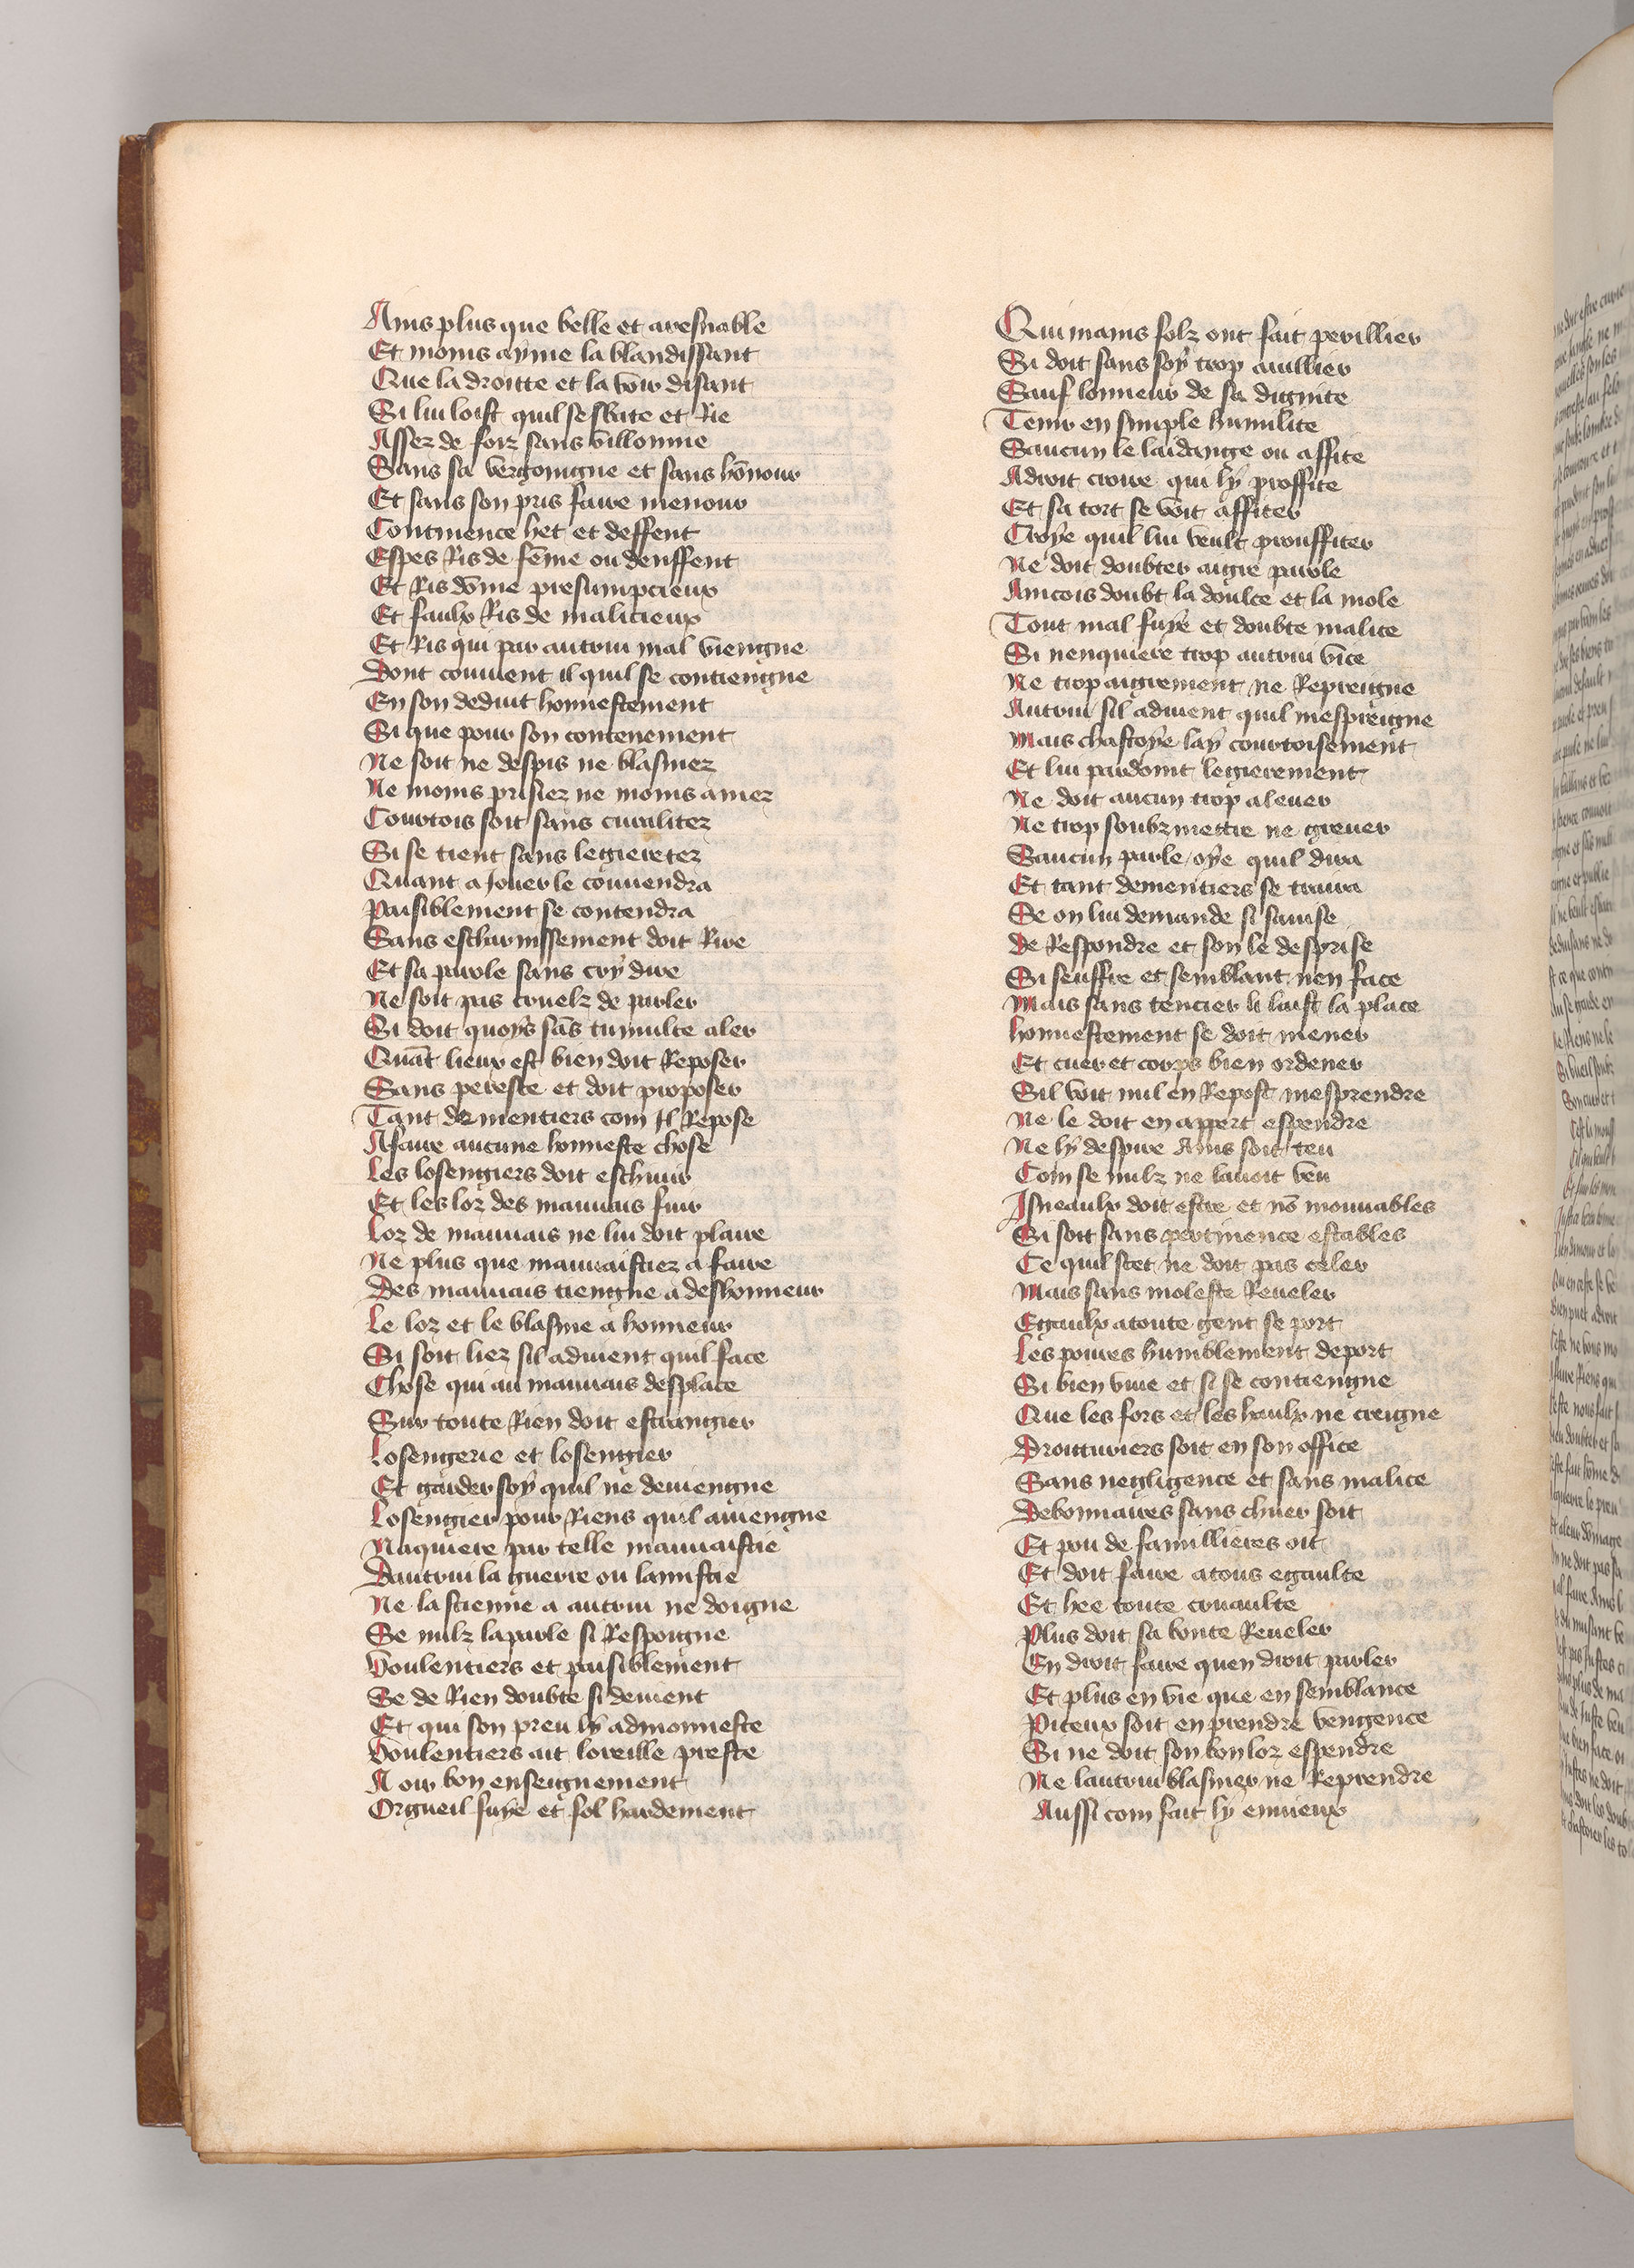 Ains plus que belle et aresnable
Et moins ayme la blandissant
Que la droitte et la voir disant
Si lui loist quil sesbate et Rie
Assez de foiz sans villonnie
Sans sa vergoingne et sans hōnour
Et sans son pris faire menour
Continence het et deffent
Espes Ris de fēme ou denffent
Et Ris dōme presumpcieux
Et faulx Ris de malicieux
Et Ris qui par autrui mal viengne
Dont convient il quil se contiengne
En son deduit honnestement
Si que pour son contenement
Ne soit ne despis ne blasmez
Ne moins prisiez ne moins amez
Courtois soit sans curialitez
Si se tient sans legieretez
Quant a Jouer le couvendra
Paisiblement se contendra
Sans escharnissement doit Rire
Et sa parole sans cry dire
Ne soit pas cruelz de parler
Si doit quoys sās tumulte aler
Quāt lieux est bien doit Reposer
Sans pereste et doit proposer
Tant dementiers com Il Repose
A faire aucune honneste chose
Les losengiers doit eschuir
Et les loz des mauvais fuir
Loz de mauvais ne lui doit plaire
Ne plus que mauvaistiez a faire
Des mauvais tiengne a deshonneur
Le loz et le blasme a honneur
Si soit liez sil advient quil face
Chose qui au mauvais desplace
Sur toute Rien doit estrangier
Losengerie et losengier
Et garder soy quil ne deviengne
Losengier pour Riens quil aviengne
Naquiere par telle mauvaistie
Dautrui la guerre ou lamistie
Ne la sienne a autrui ne doigne
Se nulz laparole si Respoigne
Voulentiers et paisiblement
Se de Rien doubte si dement
Et qui son preu ly admonneste
Voulentiers ait loreille preste
A oir bon enseignement
Orgueil fuye et fol hardement
Qui mains folz ont fait perillier
Si doit sans soy trop avillier
Sauf lonneur de sa dignite
Tenir en simple humilite
Saucun le laidange ou affite
Adroit croire qui ly proffite
Et sa tort se voit affiter
Croye quil lui veult prouffiter
Ne doit doubter aigre parole
Aincois doubt la doulce et la mole
Tout mal fuye et doubte malice
Si nenquiere trop autrui vice
Ne trop aigrement ne Repreigne
Autrui sil advient quil mespreigne
Mais chastoye lay courtoisement
Et lui pardoint legierement
Ne doit aucun trop alever
Ne trop soubzmettre ne grever
Saucun parle oye quil dira
Et tant dementiers se taira
Se on lui demande si savise
De Respondre et son le desprise
Si seuffre et semblant nen face
Mais sans tencier li luist la place
honnestement se doit mener
Et cuer et corps bien ordener
Sil voit nul en Repost mesprendre
Ne le doit en appert espendre
Ne ly despire Ains soit teu
Com se nulz ne lavoit veu
Isneaulx doit estre et nō mouvables
Si soit sans pertinence estables
Ce quil scet ne doit pas celer
Mais sans moleste Reveler
Egaulx a toute gent se port
Les povres humblement deport
Si bien vive et si se contiengne
Que les fors et les haulx ne creigne
Droitturiers soit en son office
Sans negligence et sans malice
Debonnaires sans chuer soit
Et pou de famillieres oit
Et doit faire a tous egaulte
Et hee toute cruaulte
Plus doit sa bonte Reveler
En droit faire quen droit parler
Et plus en vie que en semblance
Piteux soit en prendre vengence
Si ne doit son bon loz espendre
Ne lautrui blasmer ne Reprendre
Aussi com fait ly envieux